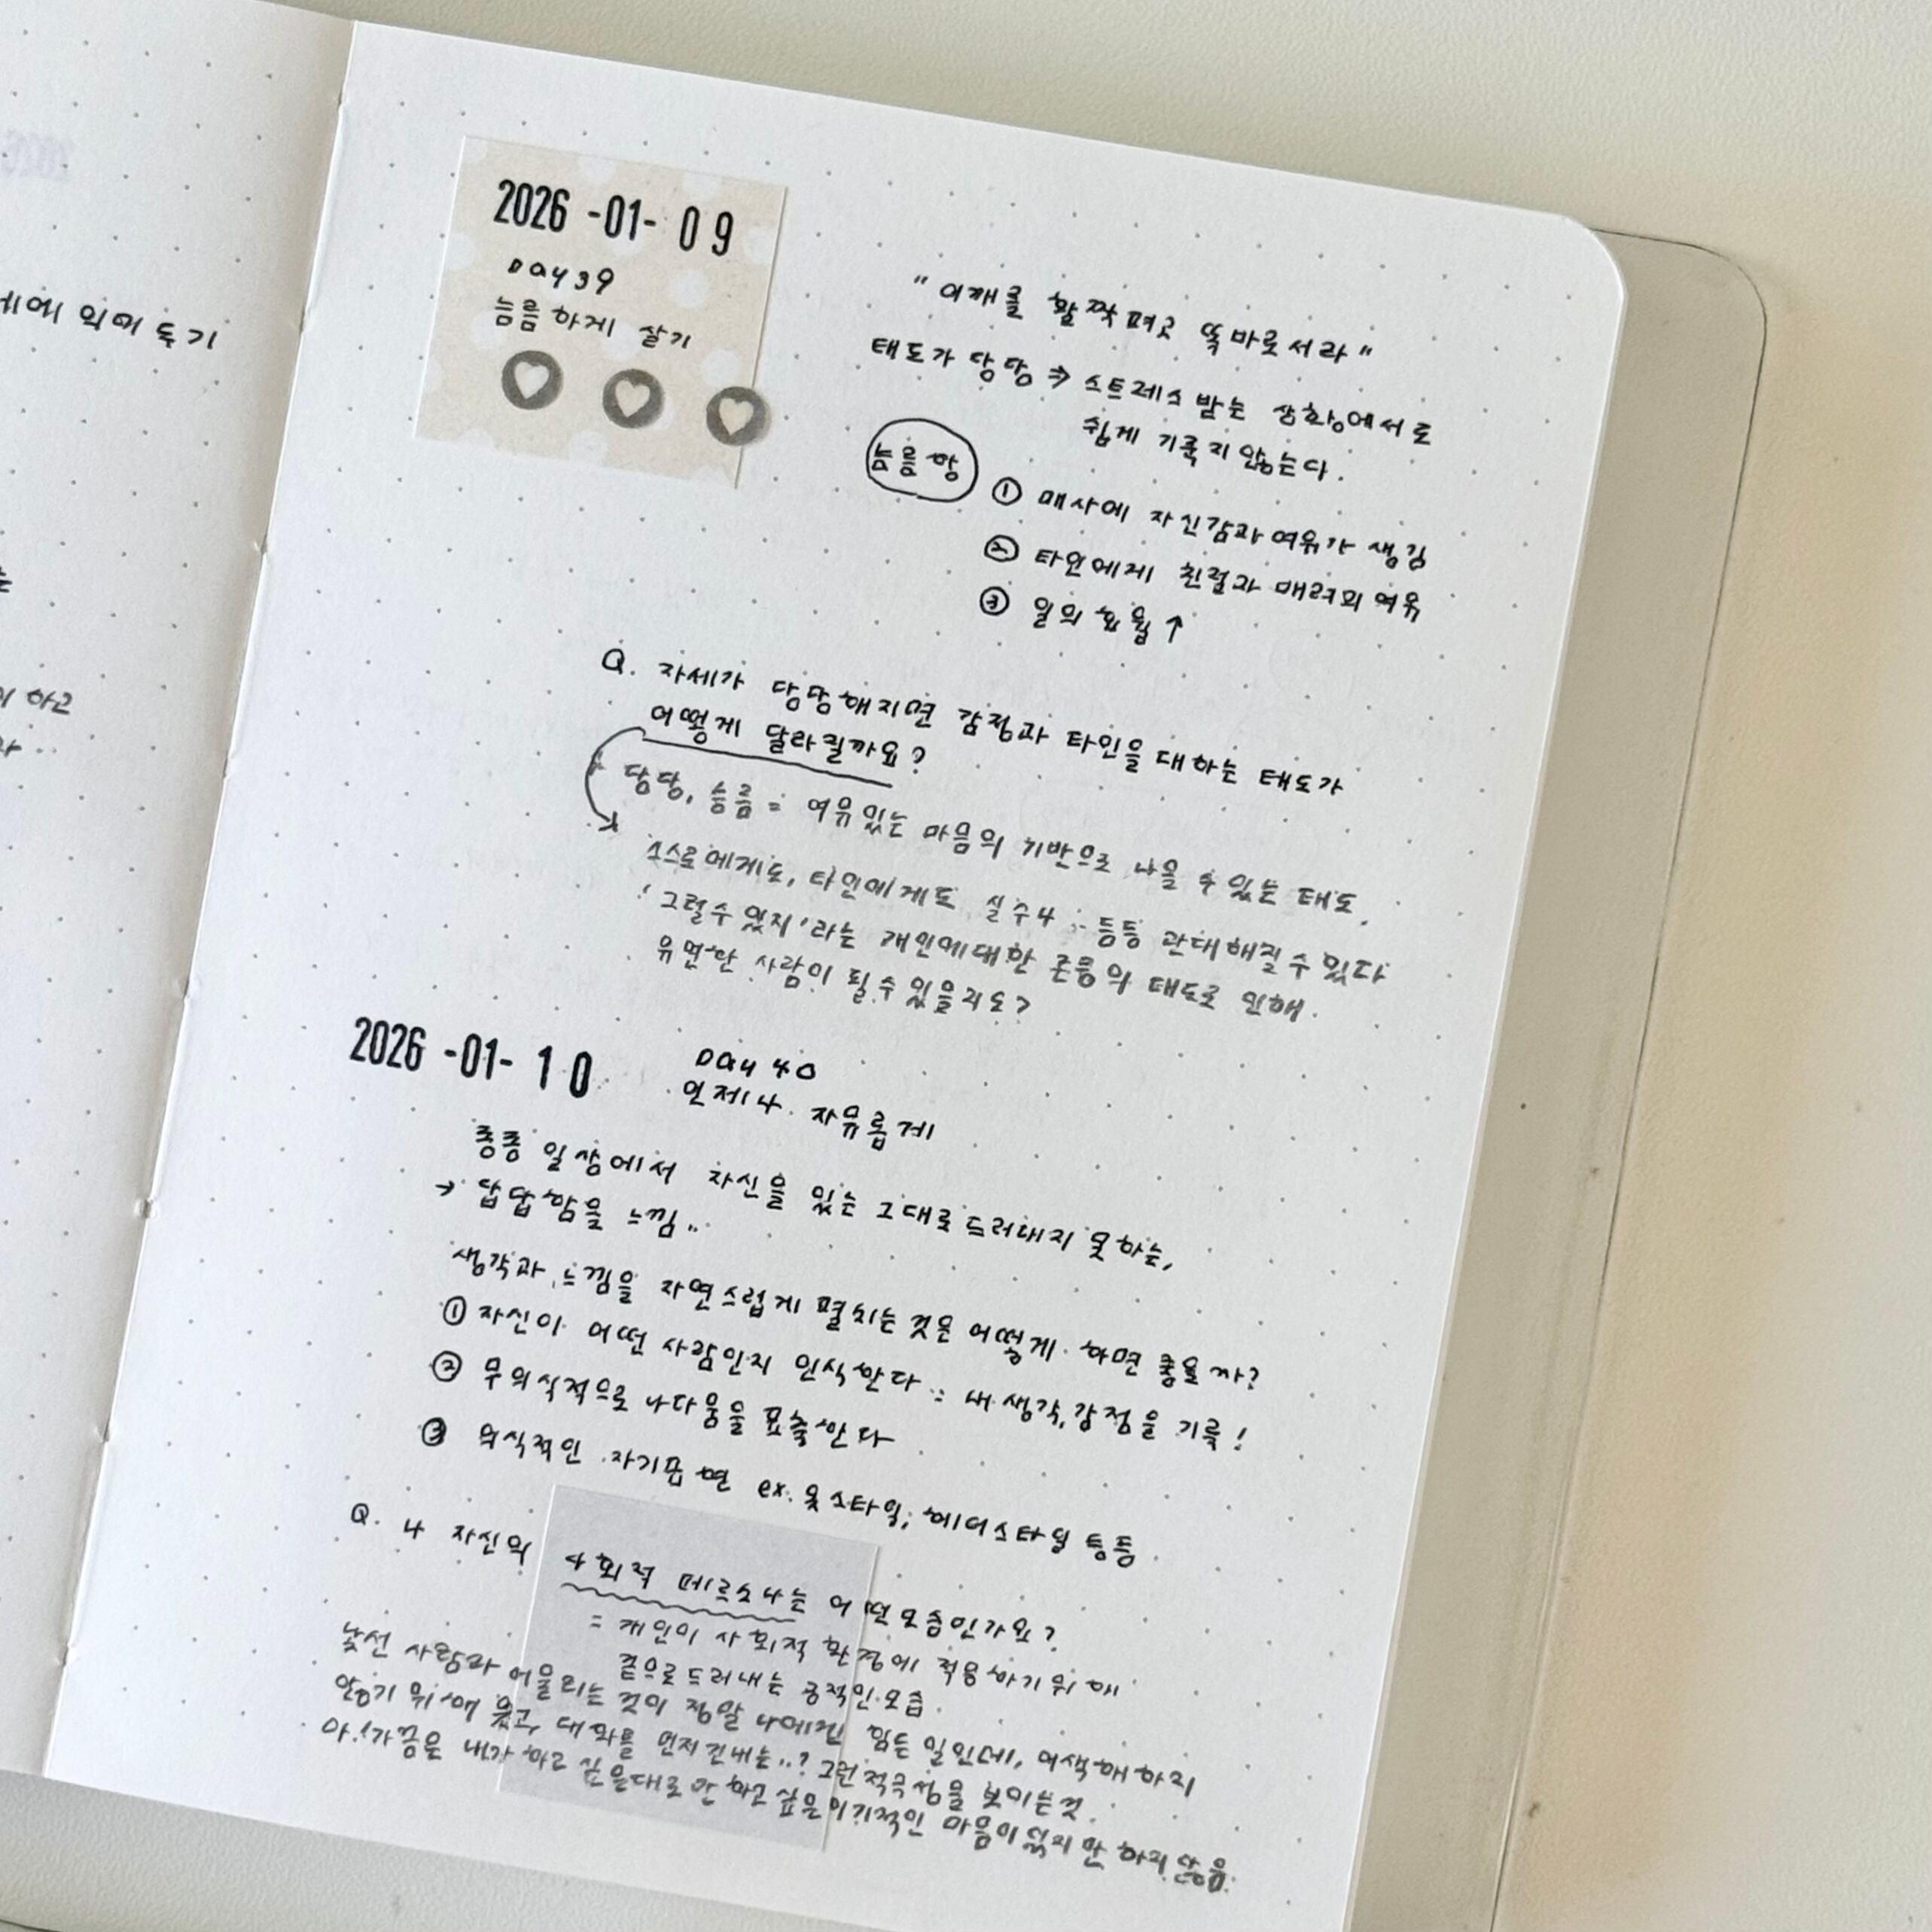 에 의미 두기
하고
2026-01-09
Day 39
늠름하게 살기
"어깨를 활짝펴고 똑바로서라"
태도가 당당 ⇒ 스트레스 받는 상황에서도
쉽게 기죽지 않는다.
늠름함
① 매사에 자신감과 여유가 생김
② 타인에게 친절과 배려의 여유
③ 일의 효율 ↑
Q. 자세가 당당해지면 감정과 타인을 대하는 태도가
어떻게 달라질까요?
당당, 늠름 = 여유있는 마음의 기반으로 나올 수 있는 태도.
스스로에게도, 타인에게도 실수나 … 등등 관대해질 수 있다
'그럴수 있지'라는 개인에대한 존중의 태도로 인해.
유연한 사람이 될 수 있을지도?
2026-01-10
Day 40
언제나 자유롭게
종종 일상에서 자신을 있는 그대로 드러내지 못하는,
→ 답답함을 느낌..
생각과 느낌을 자연스럽게 펼치는 것은 어떻게 하면 좋을까?
① 자신이 어떤 사람인지 인식한다 : 내 생각,감정을 기록!
② 무의식적으로 나다움을 표출한다
③ 의식적인 자기표현 ex. 옷스타일, 헤어스타일 등등
Q. 나 자신의 사회적 페르소나는 어떤모습인가요?
= 개인이 사회적 환경에 적응하기위해
겉으로 드러내는 공적인 모습.
낯선 사람과 어울리는 것이 정말 나에겐 힘든 일인데, 어색해하지
않기 위해 웃고, 대화를 먼저 건내는..? 그런적극성을 보이는것.
아! 가끔은 내가 하고 싶은대로만 하고 싶은 이기적인 마음이 있지만 하지않음.